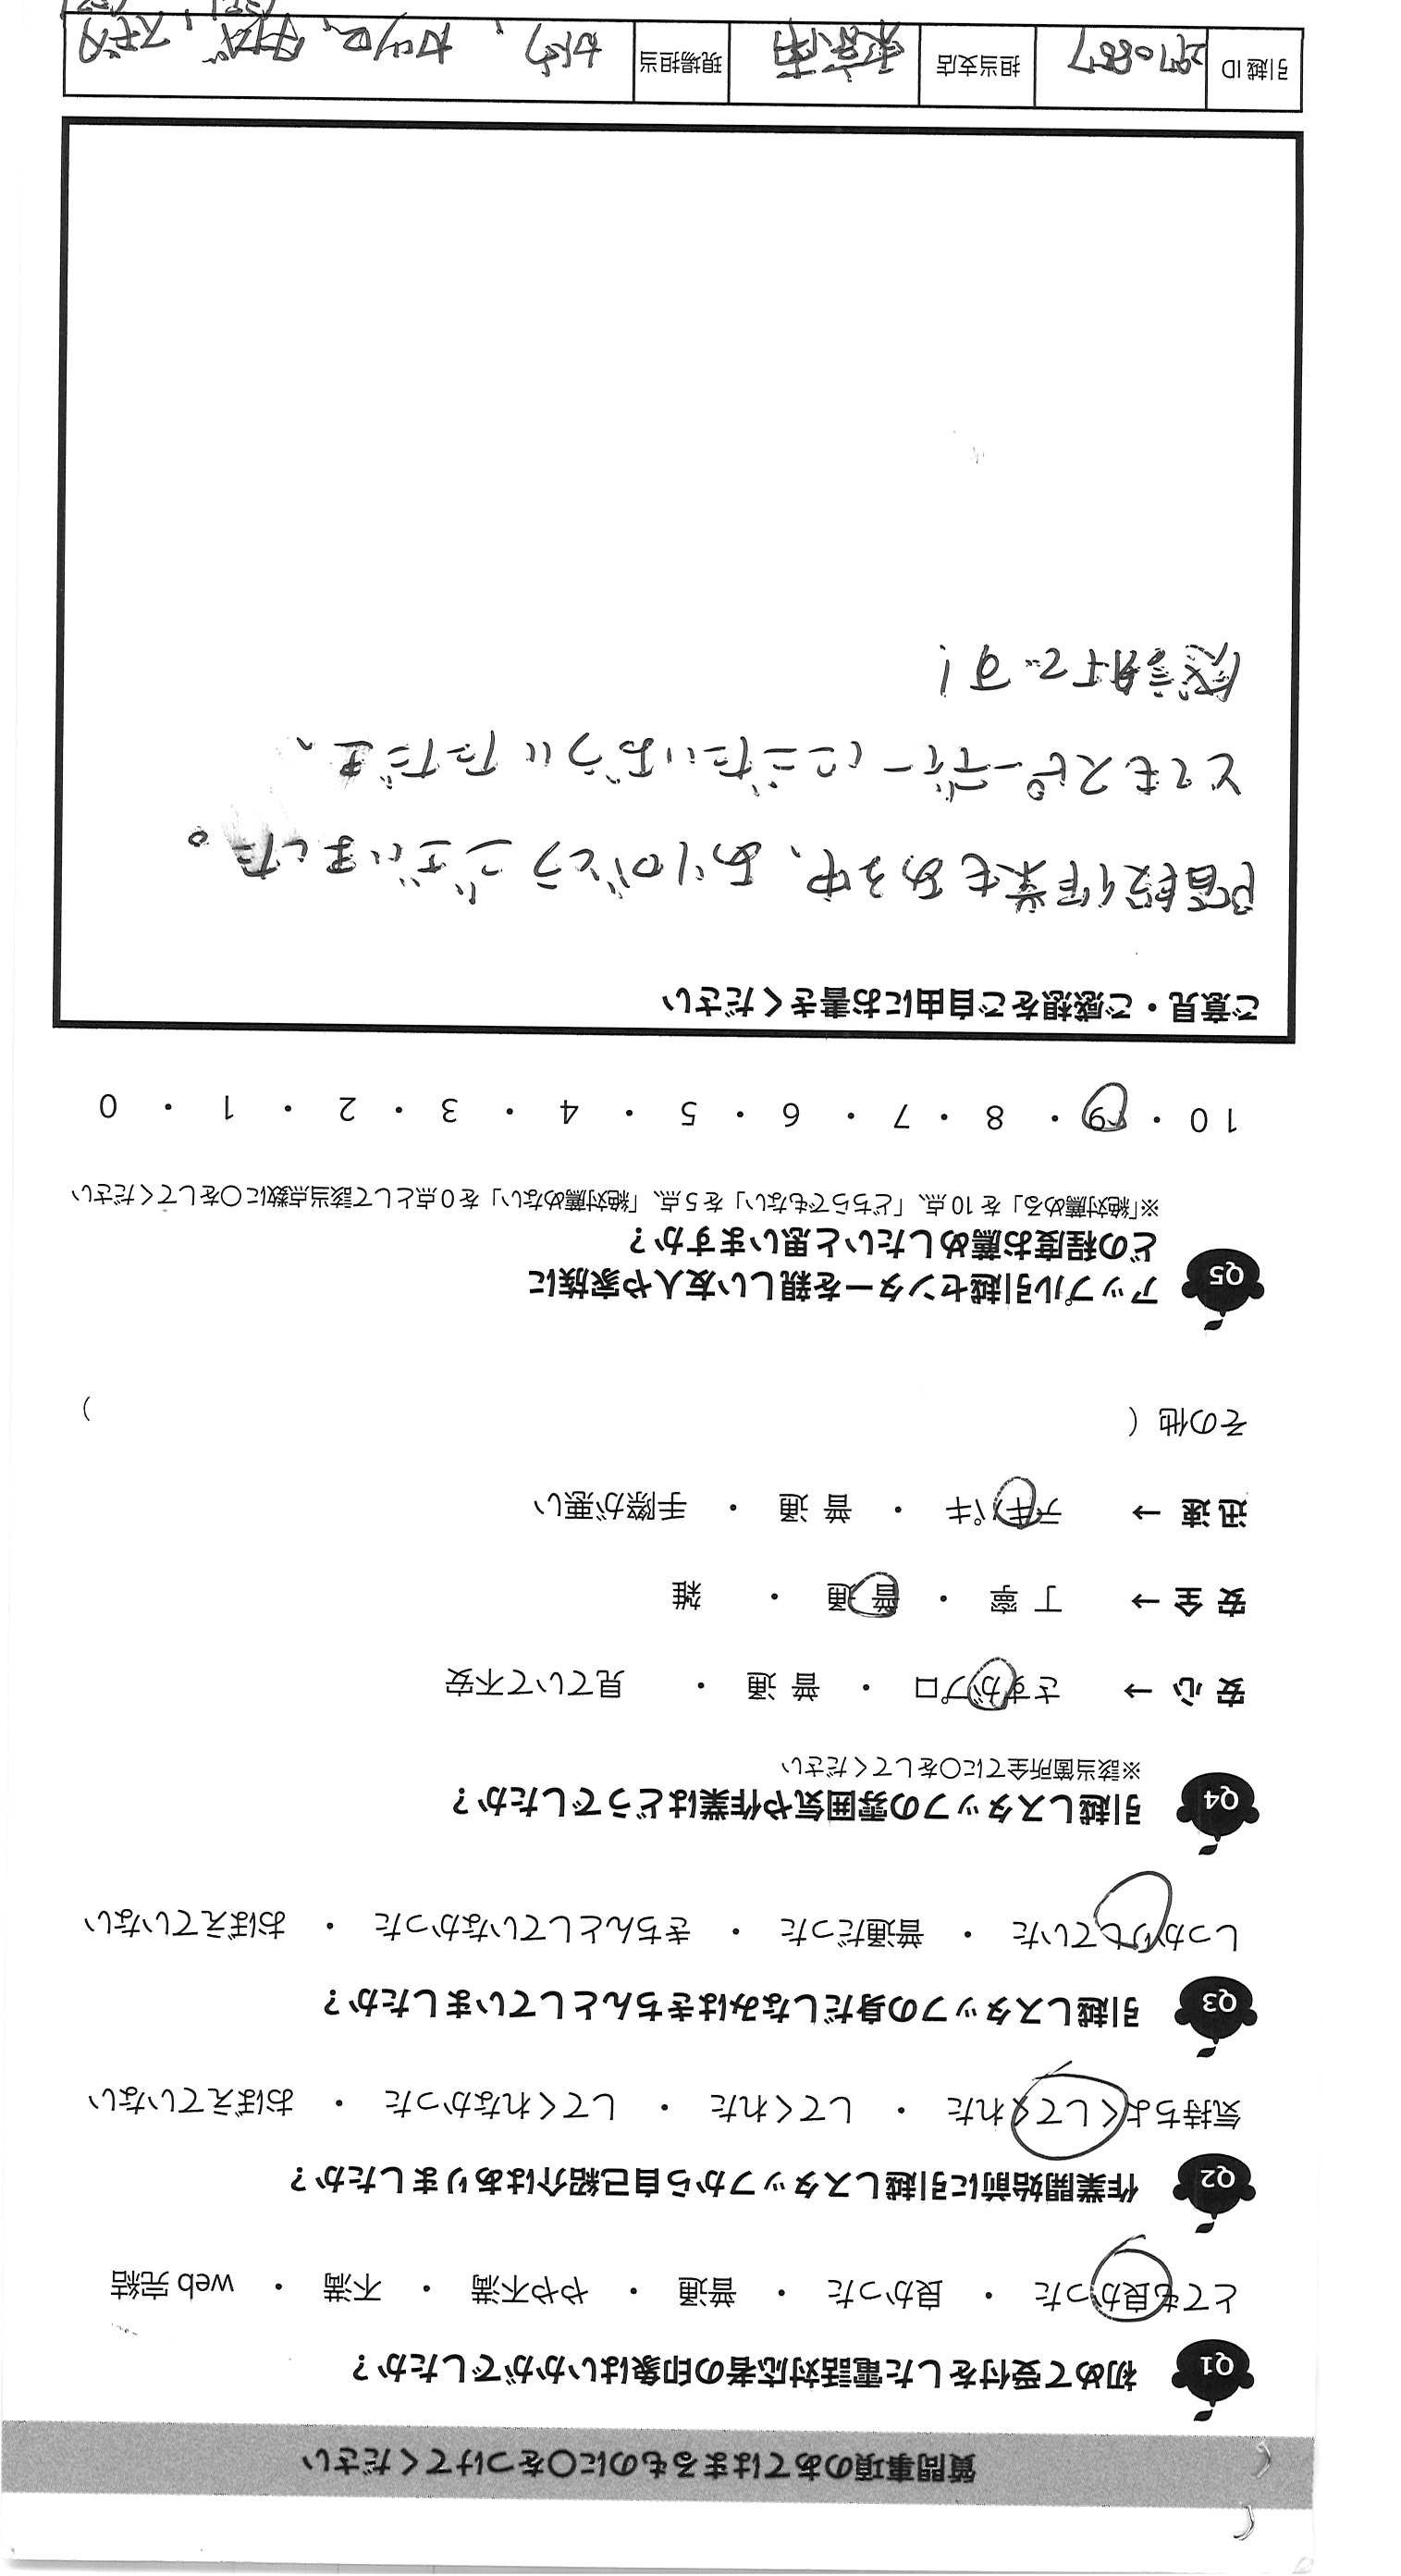 質問事項のあてはまるものに○をつけてください
Q1 初めて受付をした電話対応者の印象はいかがでしたか？
とても良かった ・ 良かった ・ 普通 ・ やや不満 ・ 不満 ・ web 完結
Q2 作業開始前に引越しスタッフから自己紹介はありましたか？
気持ちよくしてくれた ・ してくれた ・ してくれなかった ・ おぼえていない
Q3 引越しスタッフの身だしなみはきちんとしていましたか？
しっかりしていた ・ 普通だった ・ きちんとしていなかった ・ おぼえていない
Q4 引越しスタッフの雰囲気や作業はどうでしたか？
※該当箇所全てに○をしてください
安心 → さすがプロ ・ 普通 ・ 見ていて不安
安全 → 丁寧 ・ 普通 ・ 雑
迅速 → テキパキ ・ 普通 ・ 手際が悪い
その他（ ）
Q5 アップル引越センターを親しい友人や家族に
どの程度お薦めしたいと思いますか？
※「絶対薦める」を10点、「どちらでもない」を5点、「絶対薦めない」を0点として該当点数に○をしてください
10 ・ 9 ・ 8 ・ 7 ・ 6 ・ 5 ・ 4 ・ 3 ・ 2 ・ 1 ・ 0
ご意見・ご感想をご自由にお書きください
階段作業もある中、ありがとうございました。
とてもスピーディーにごたいおういただき、
感謝です!
引越ID 2970887 担当支店 東京南 現場担当